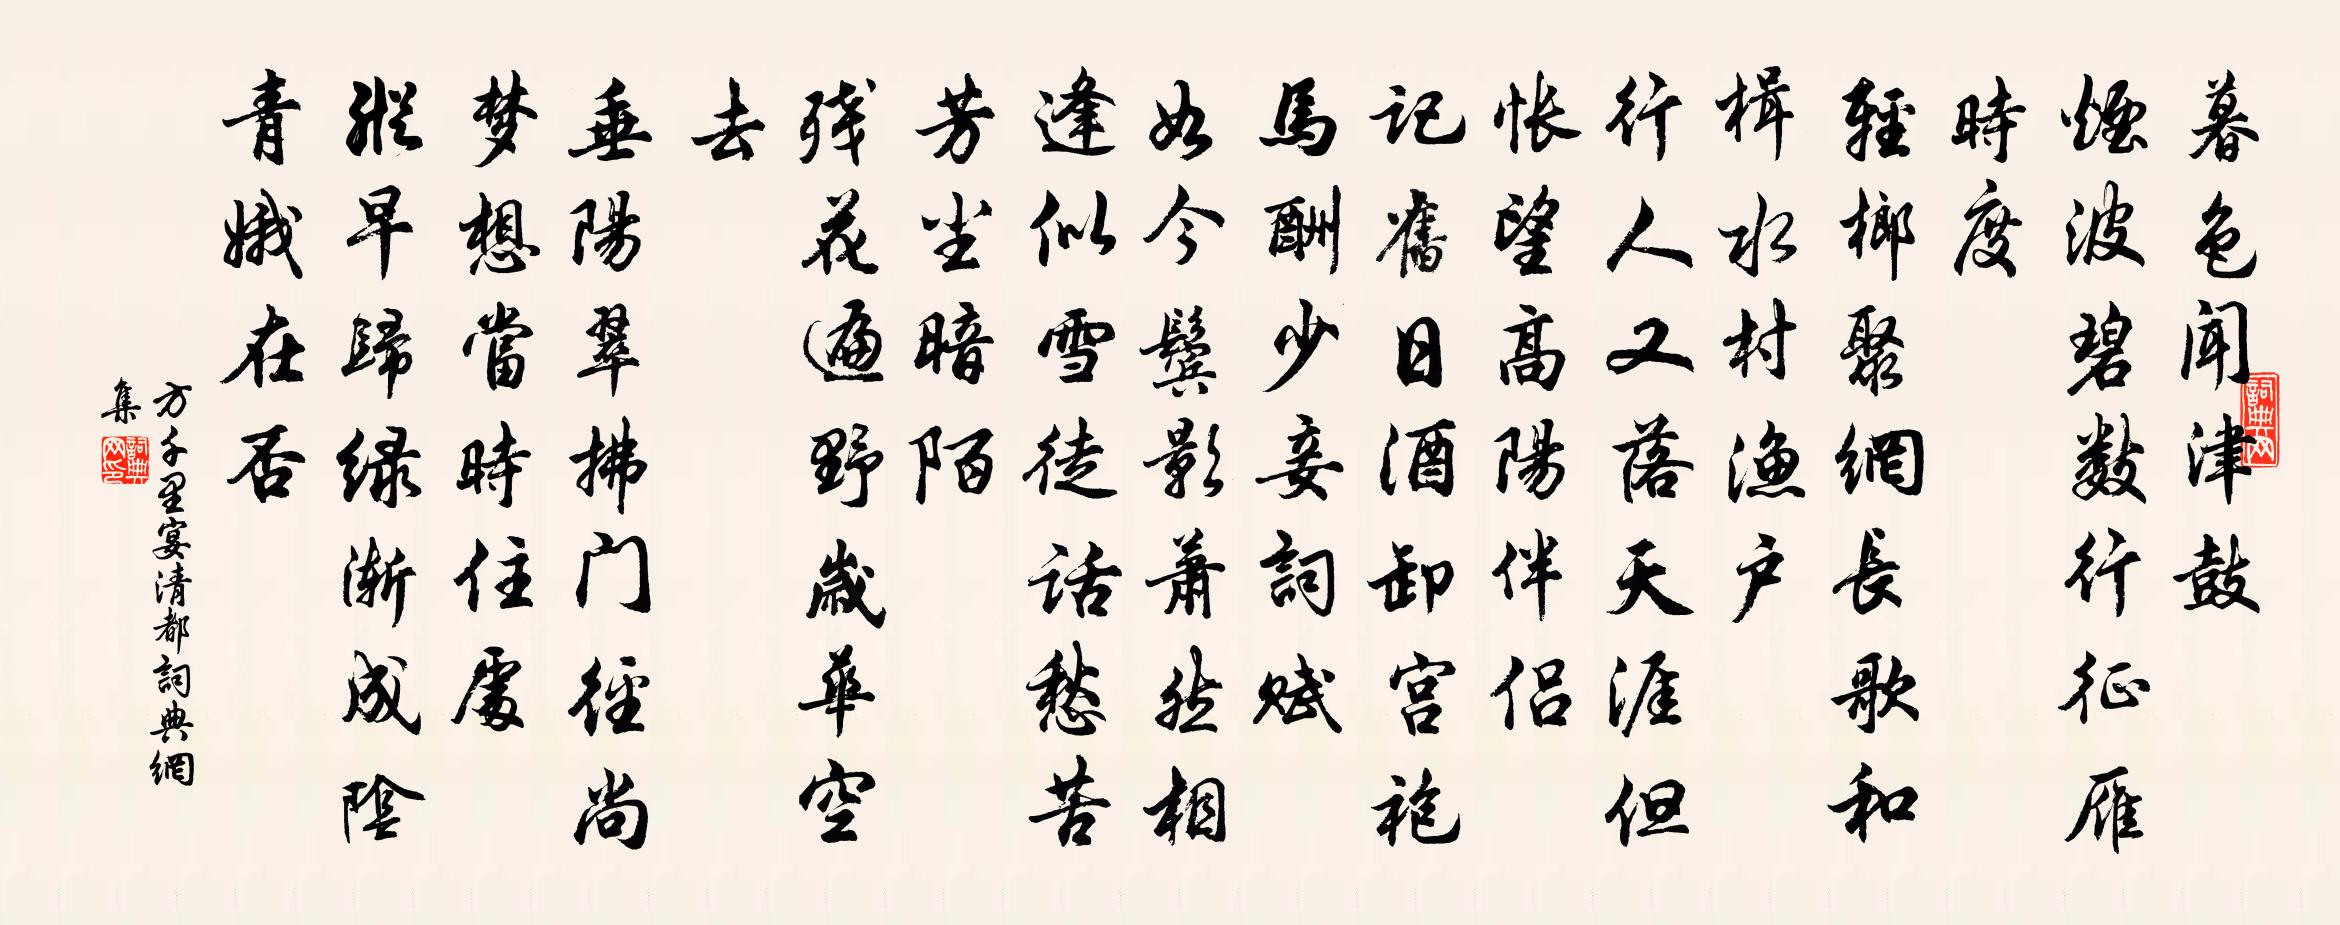 暮色闻津鼓
煙波碧數行征雁
時度
輕榔聚網長歌和
楫水村漁户
行人又落天涯但
怅望高陽伴侣
记舊日酒卸宫袍
馬酬少妾詞赋
如今鬓影萧然相
逢似雪徒话愁苦
芳尘暗陌
残花遍野歲華空
去
垂陽翠拂门徑尚
梦想當時住處
縱早歸绿渐成陰
青娥在否
方千里宴清都詞典網
集
詞典网
詞典网印